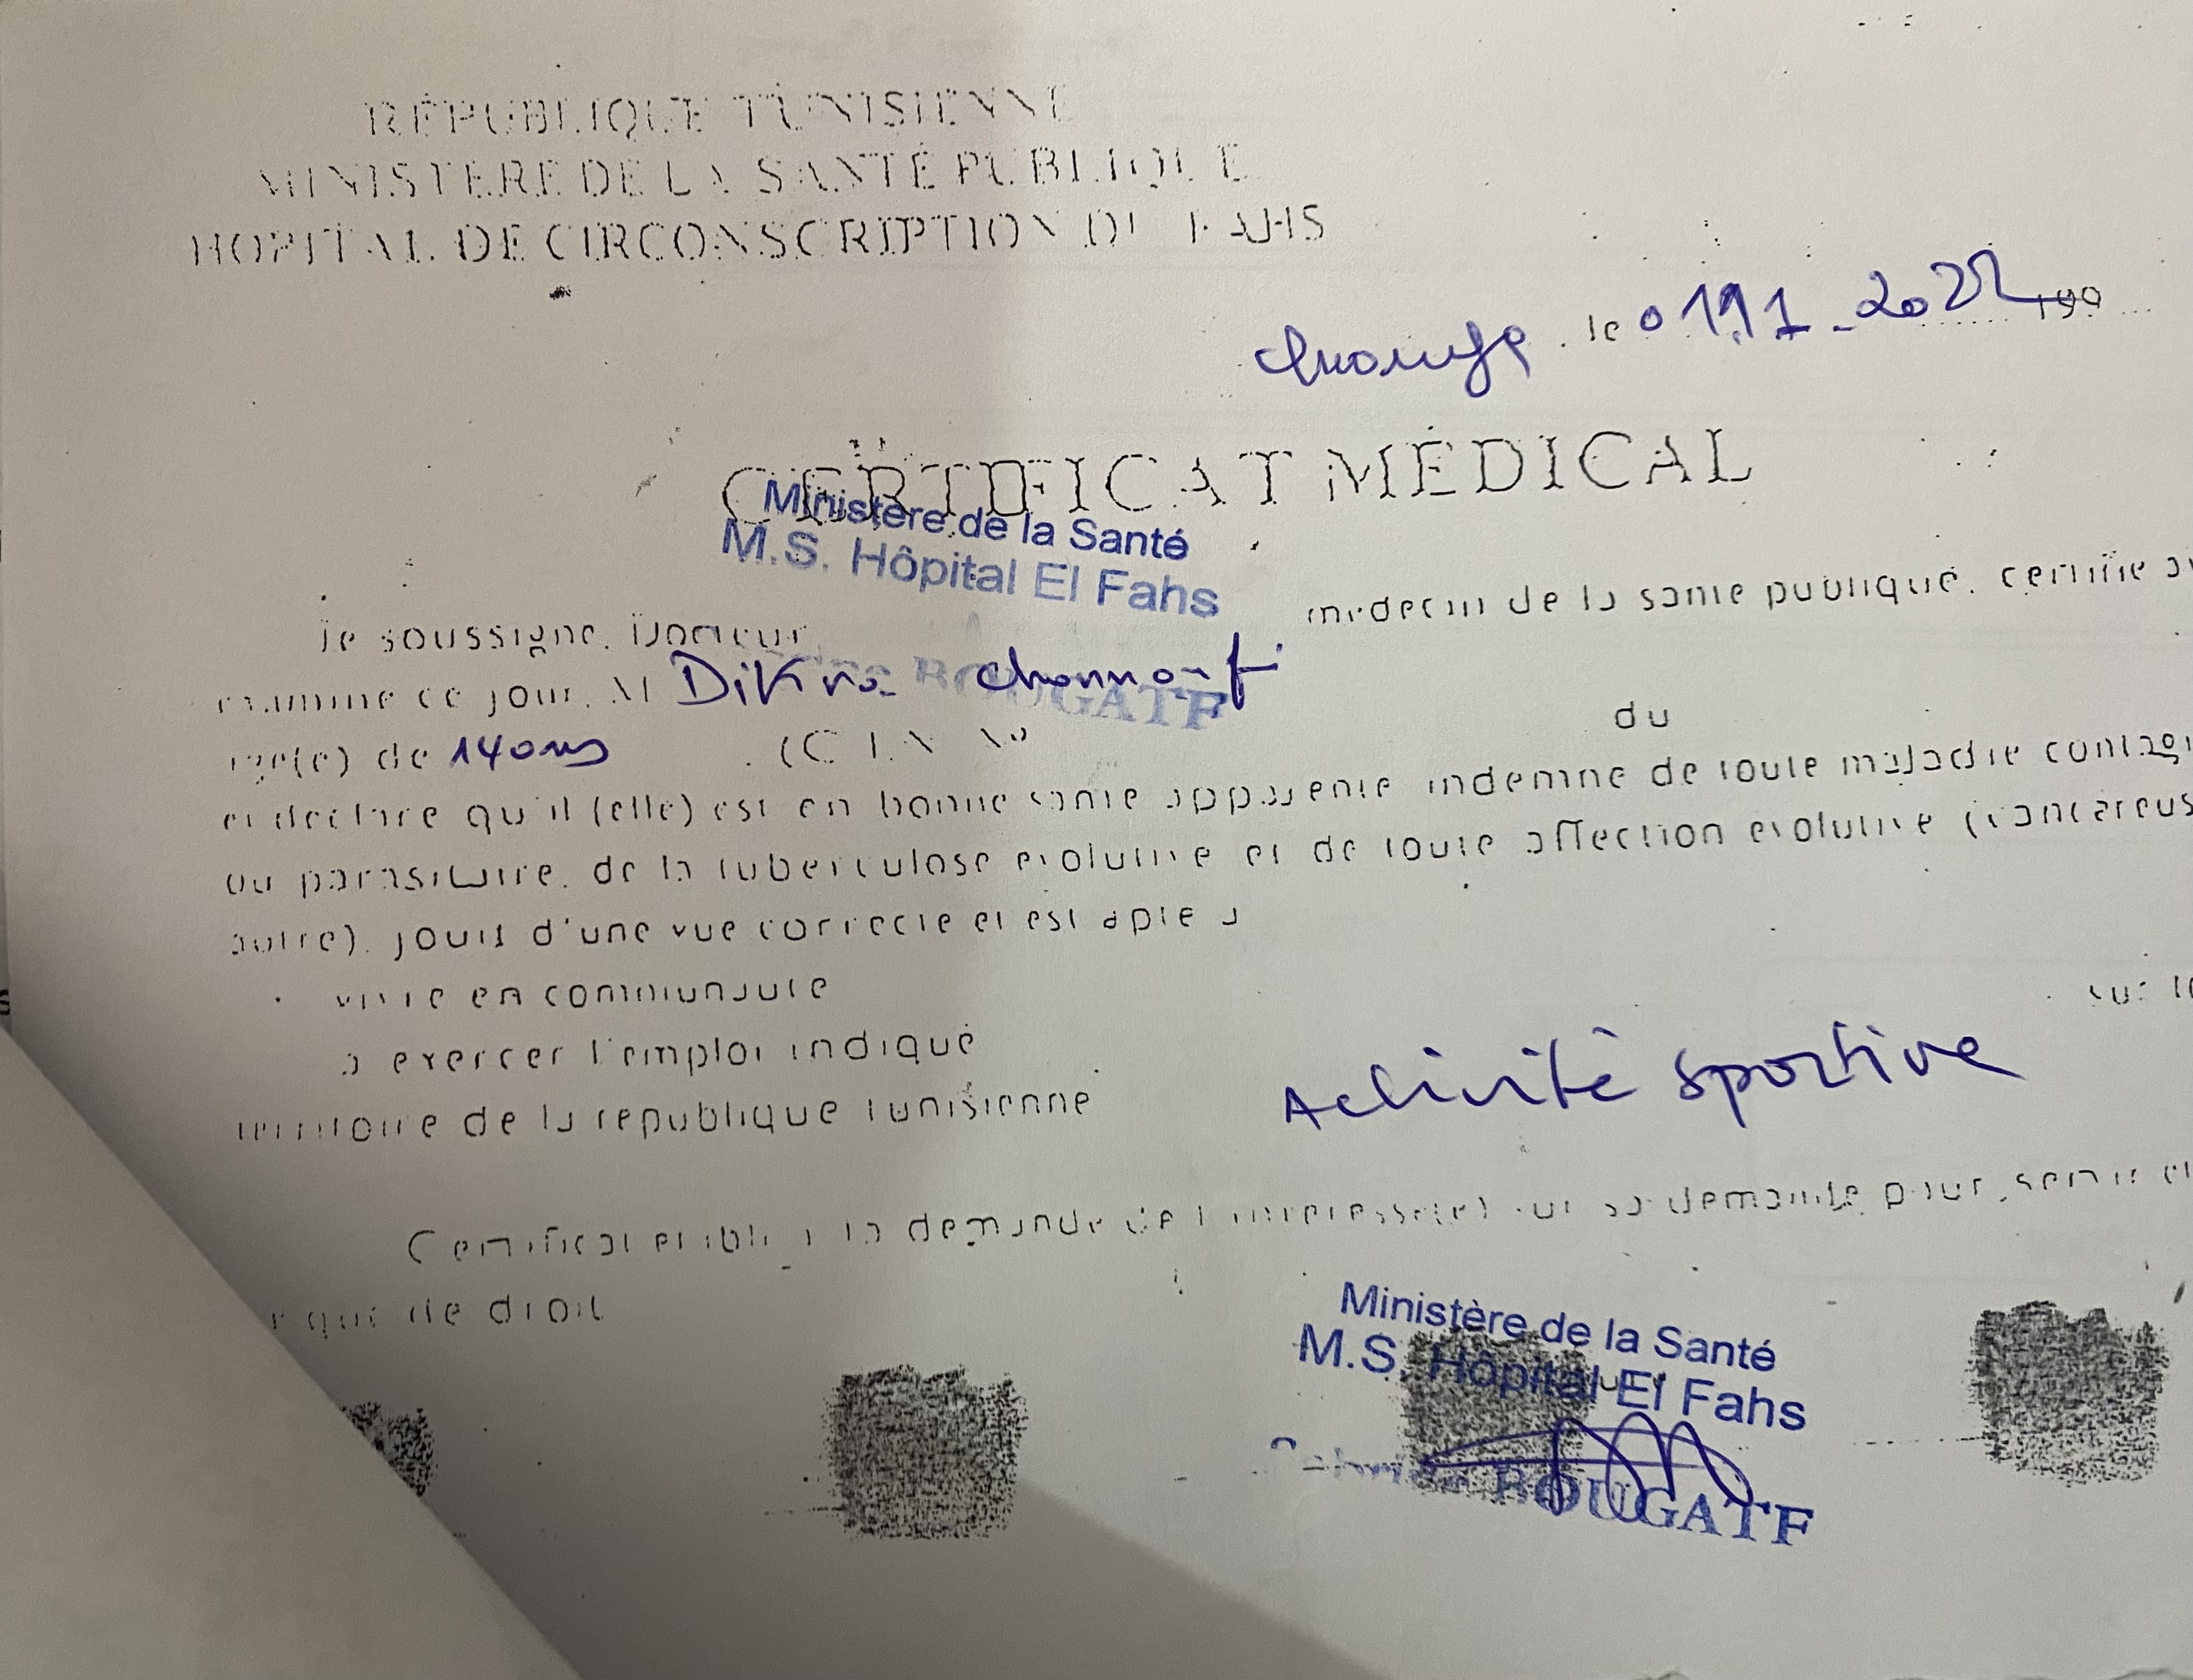 RÉPUBLIQUE TUNISIENNE
MINISTERE DE LA SANTÉ PUBLIQUE
HOPITAL DE CIRCONSCRIPTION DE FAHS
le 2022 199
CERTIFICAT MÉDICAL
Ministère de la Santé
M.S. Hôpital El Fahs
Je soussigné, Docteur médecin de la santé publique, certifie
BOUGATF
examiné ce jour, M
âgé(e) de 14 ans (C.I.N N° du
et déclare qu'il (elle) est en bonne santé apparente indemne de toute maladie
ou parasitaire, de la tuberculose évolutive et de toute affection évolutive
autre), jouit d'une vue correcte et est apte à
vivre en communauté
à exercer l'emploi indiqué
Activité sportive
territoire de la république tunisienne
Certificat établi à la demande de l'intéressé(e) sur sa demande pour servir
qui de droit
Ministère de la Santé
M.S. Hôpital El Fahs
BOUGATF